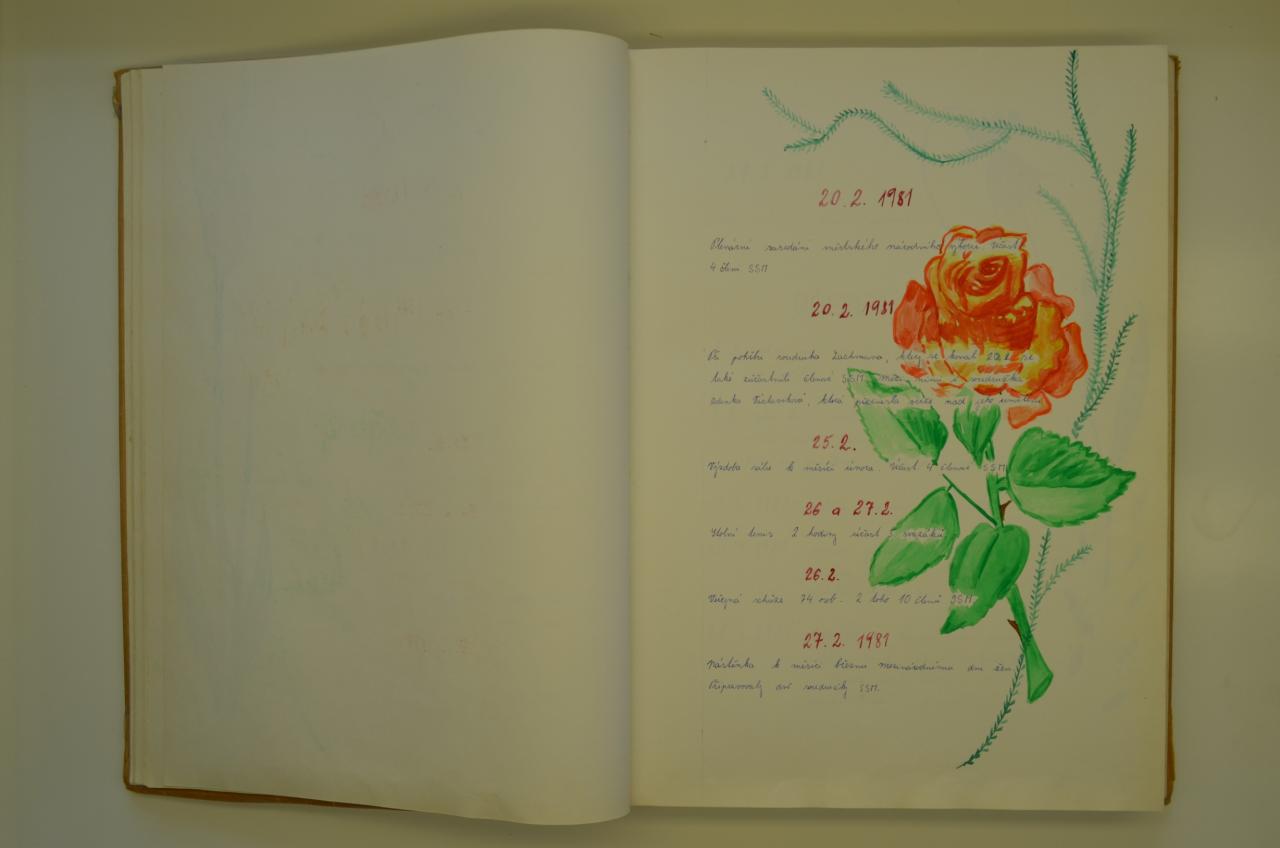 20. 2. 1981
Plenární zasedání městského národního výboru. Účast
4 členi SSM
20. 2. 1981
Při pohřbu soudruha Zachmana, který se konal 20.2. se
také zúčastnili členové SSM. Mezi nimi i soudružka
Zdenka, která pronesla nad jeho
25. 2.
Výzdoba sálu k měsíci února. Účast 4 členové SSM
26 a 27. 2.
Stolní tenis 2 hodiny účast 5 svazáků
26. 2.
Veřejná schůze 74 osob. Z toho 10 členů SSM
27. 2. 1981
Nástěnka k měsíci březnu mezinárodnímu dni žen
Připravovaly dvě soudružky SSM.